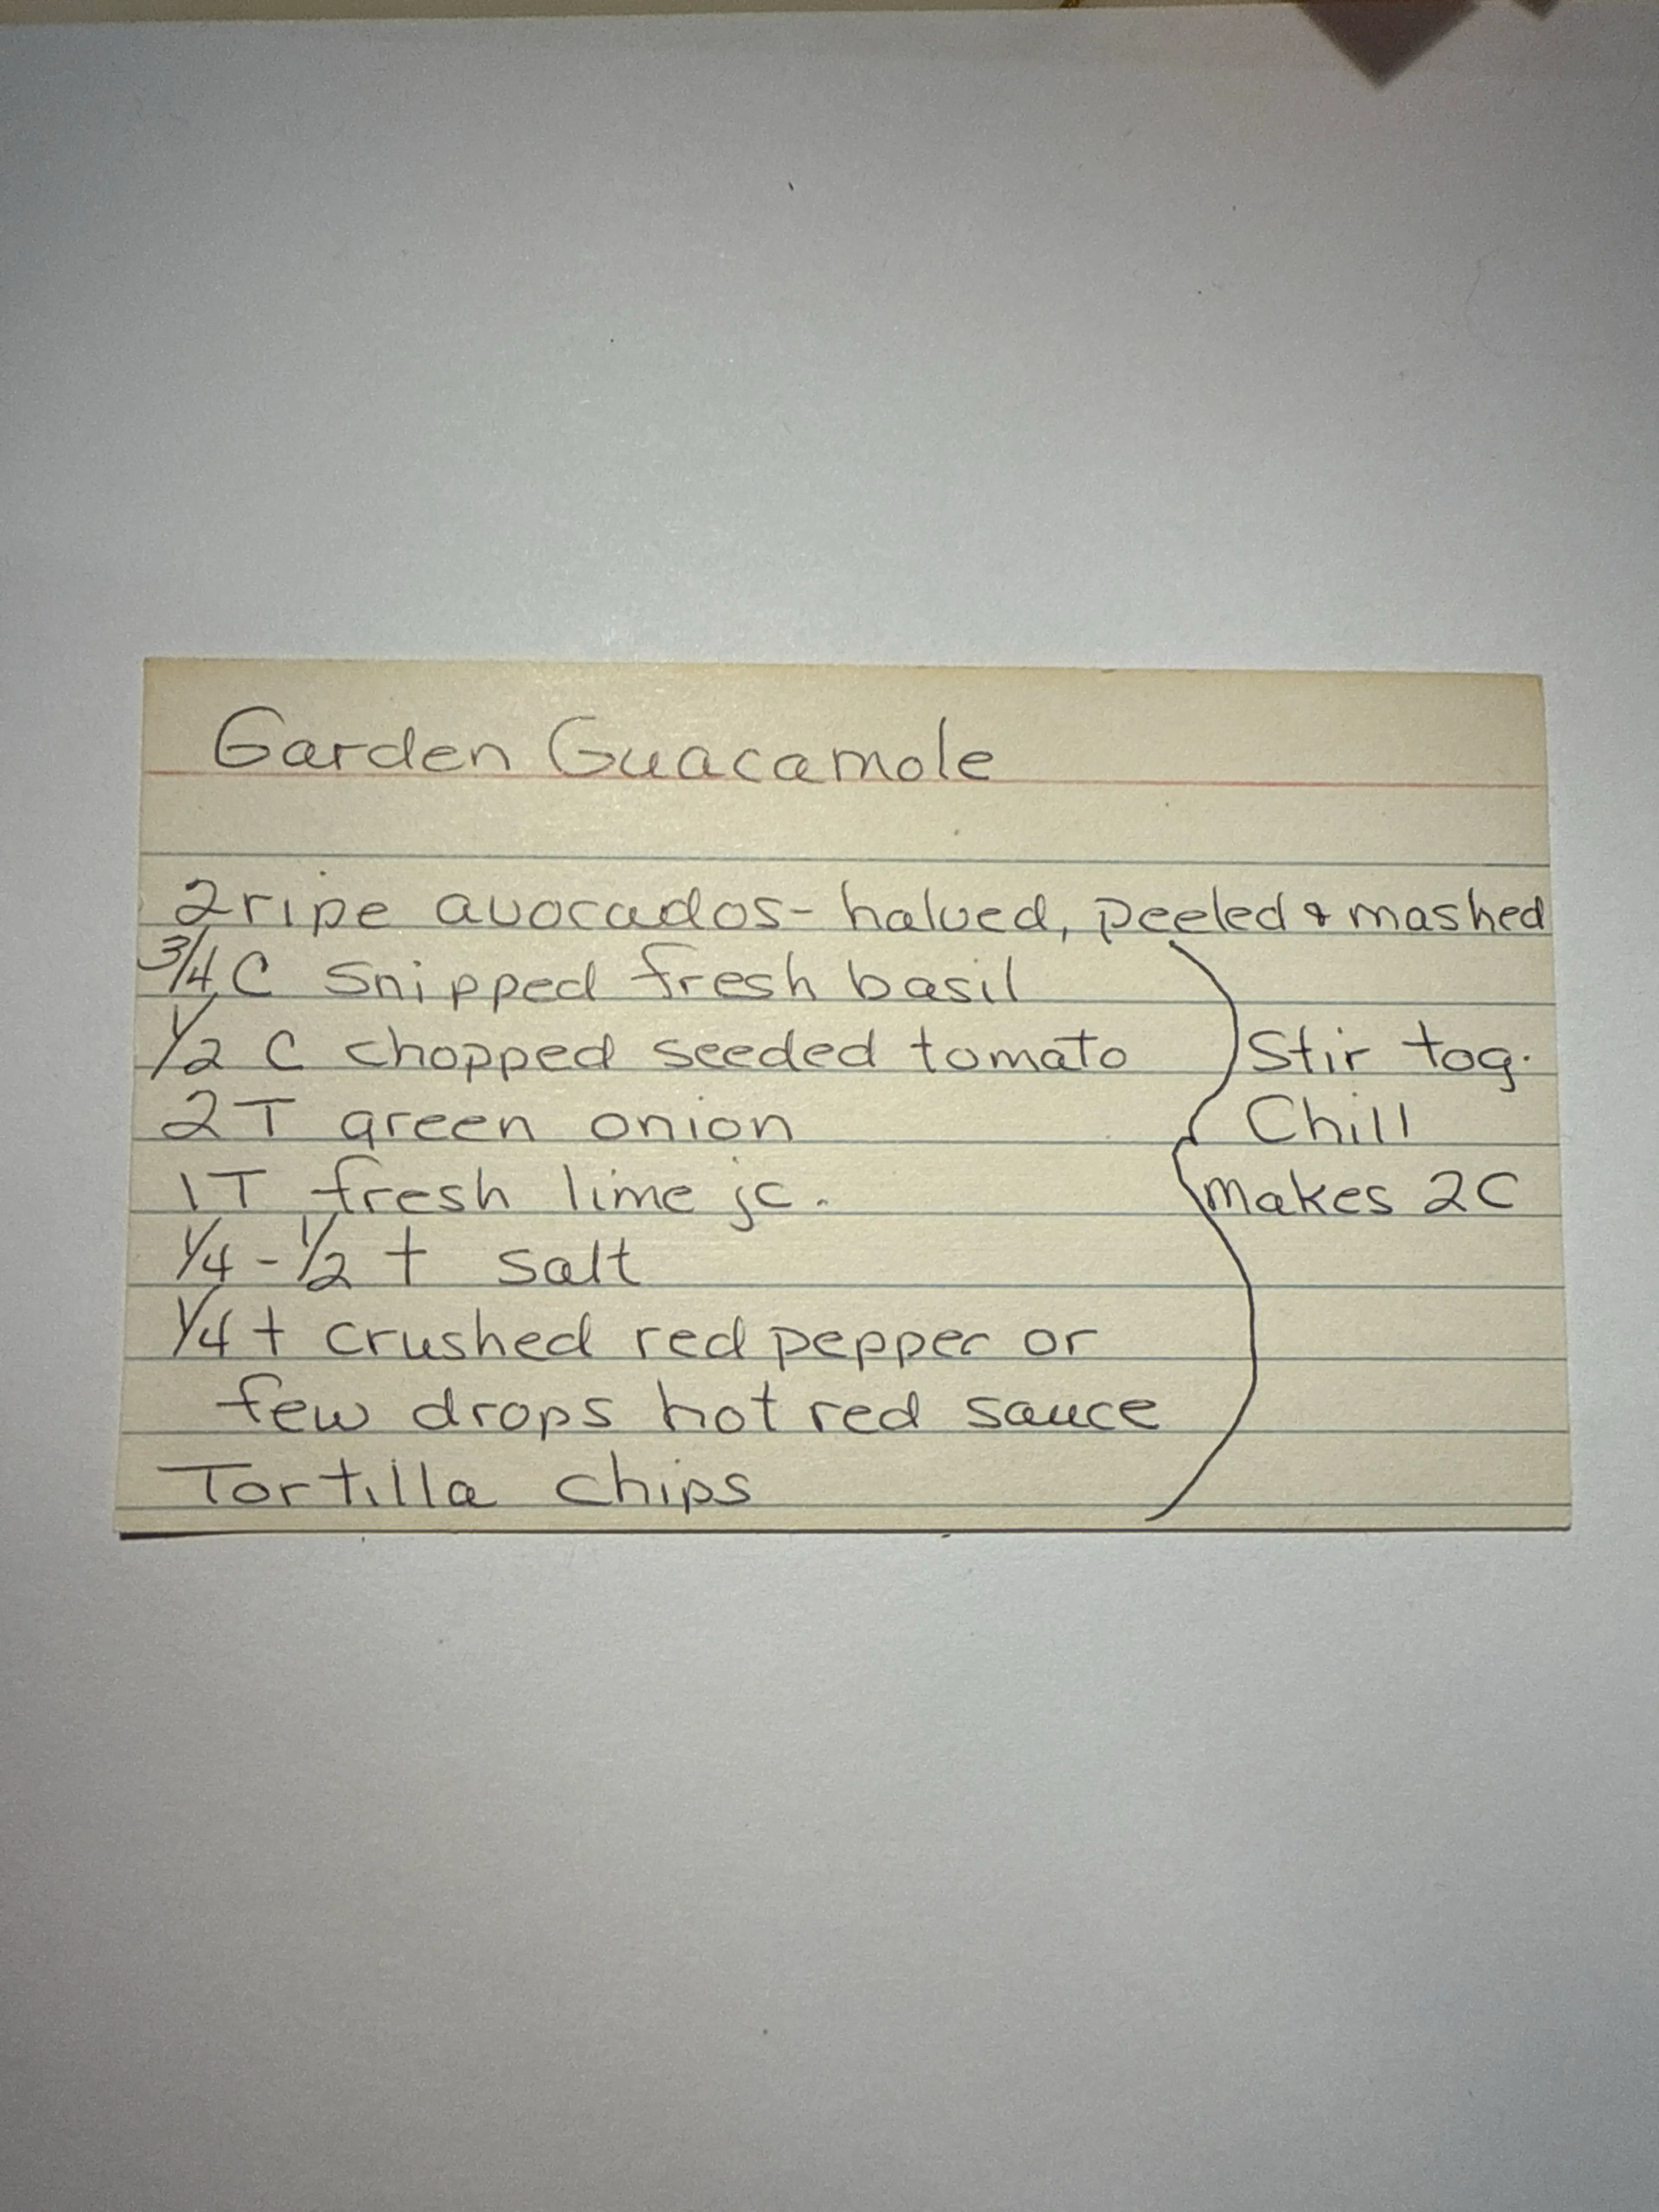 Garden Guacamole
2 ripe avocados - halved, peeled & mashed
3/4 C snipped fresh basil
1/2 C chopped seeded tomato
2 T green onion
1 T fresh lime jc.
1/4 - 1/2 t salt
1/4 t crushed red pepper or
few drops hot red sauce
Tortilla chips
Stir tog.
Chill
makes 2C